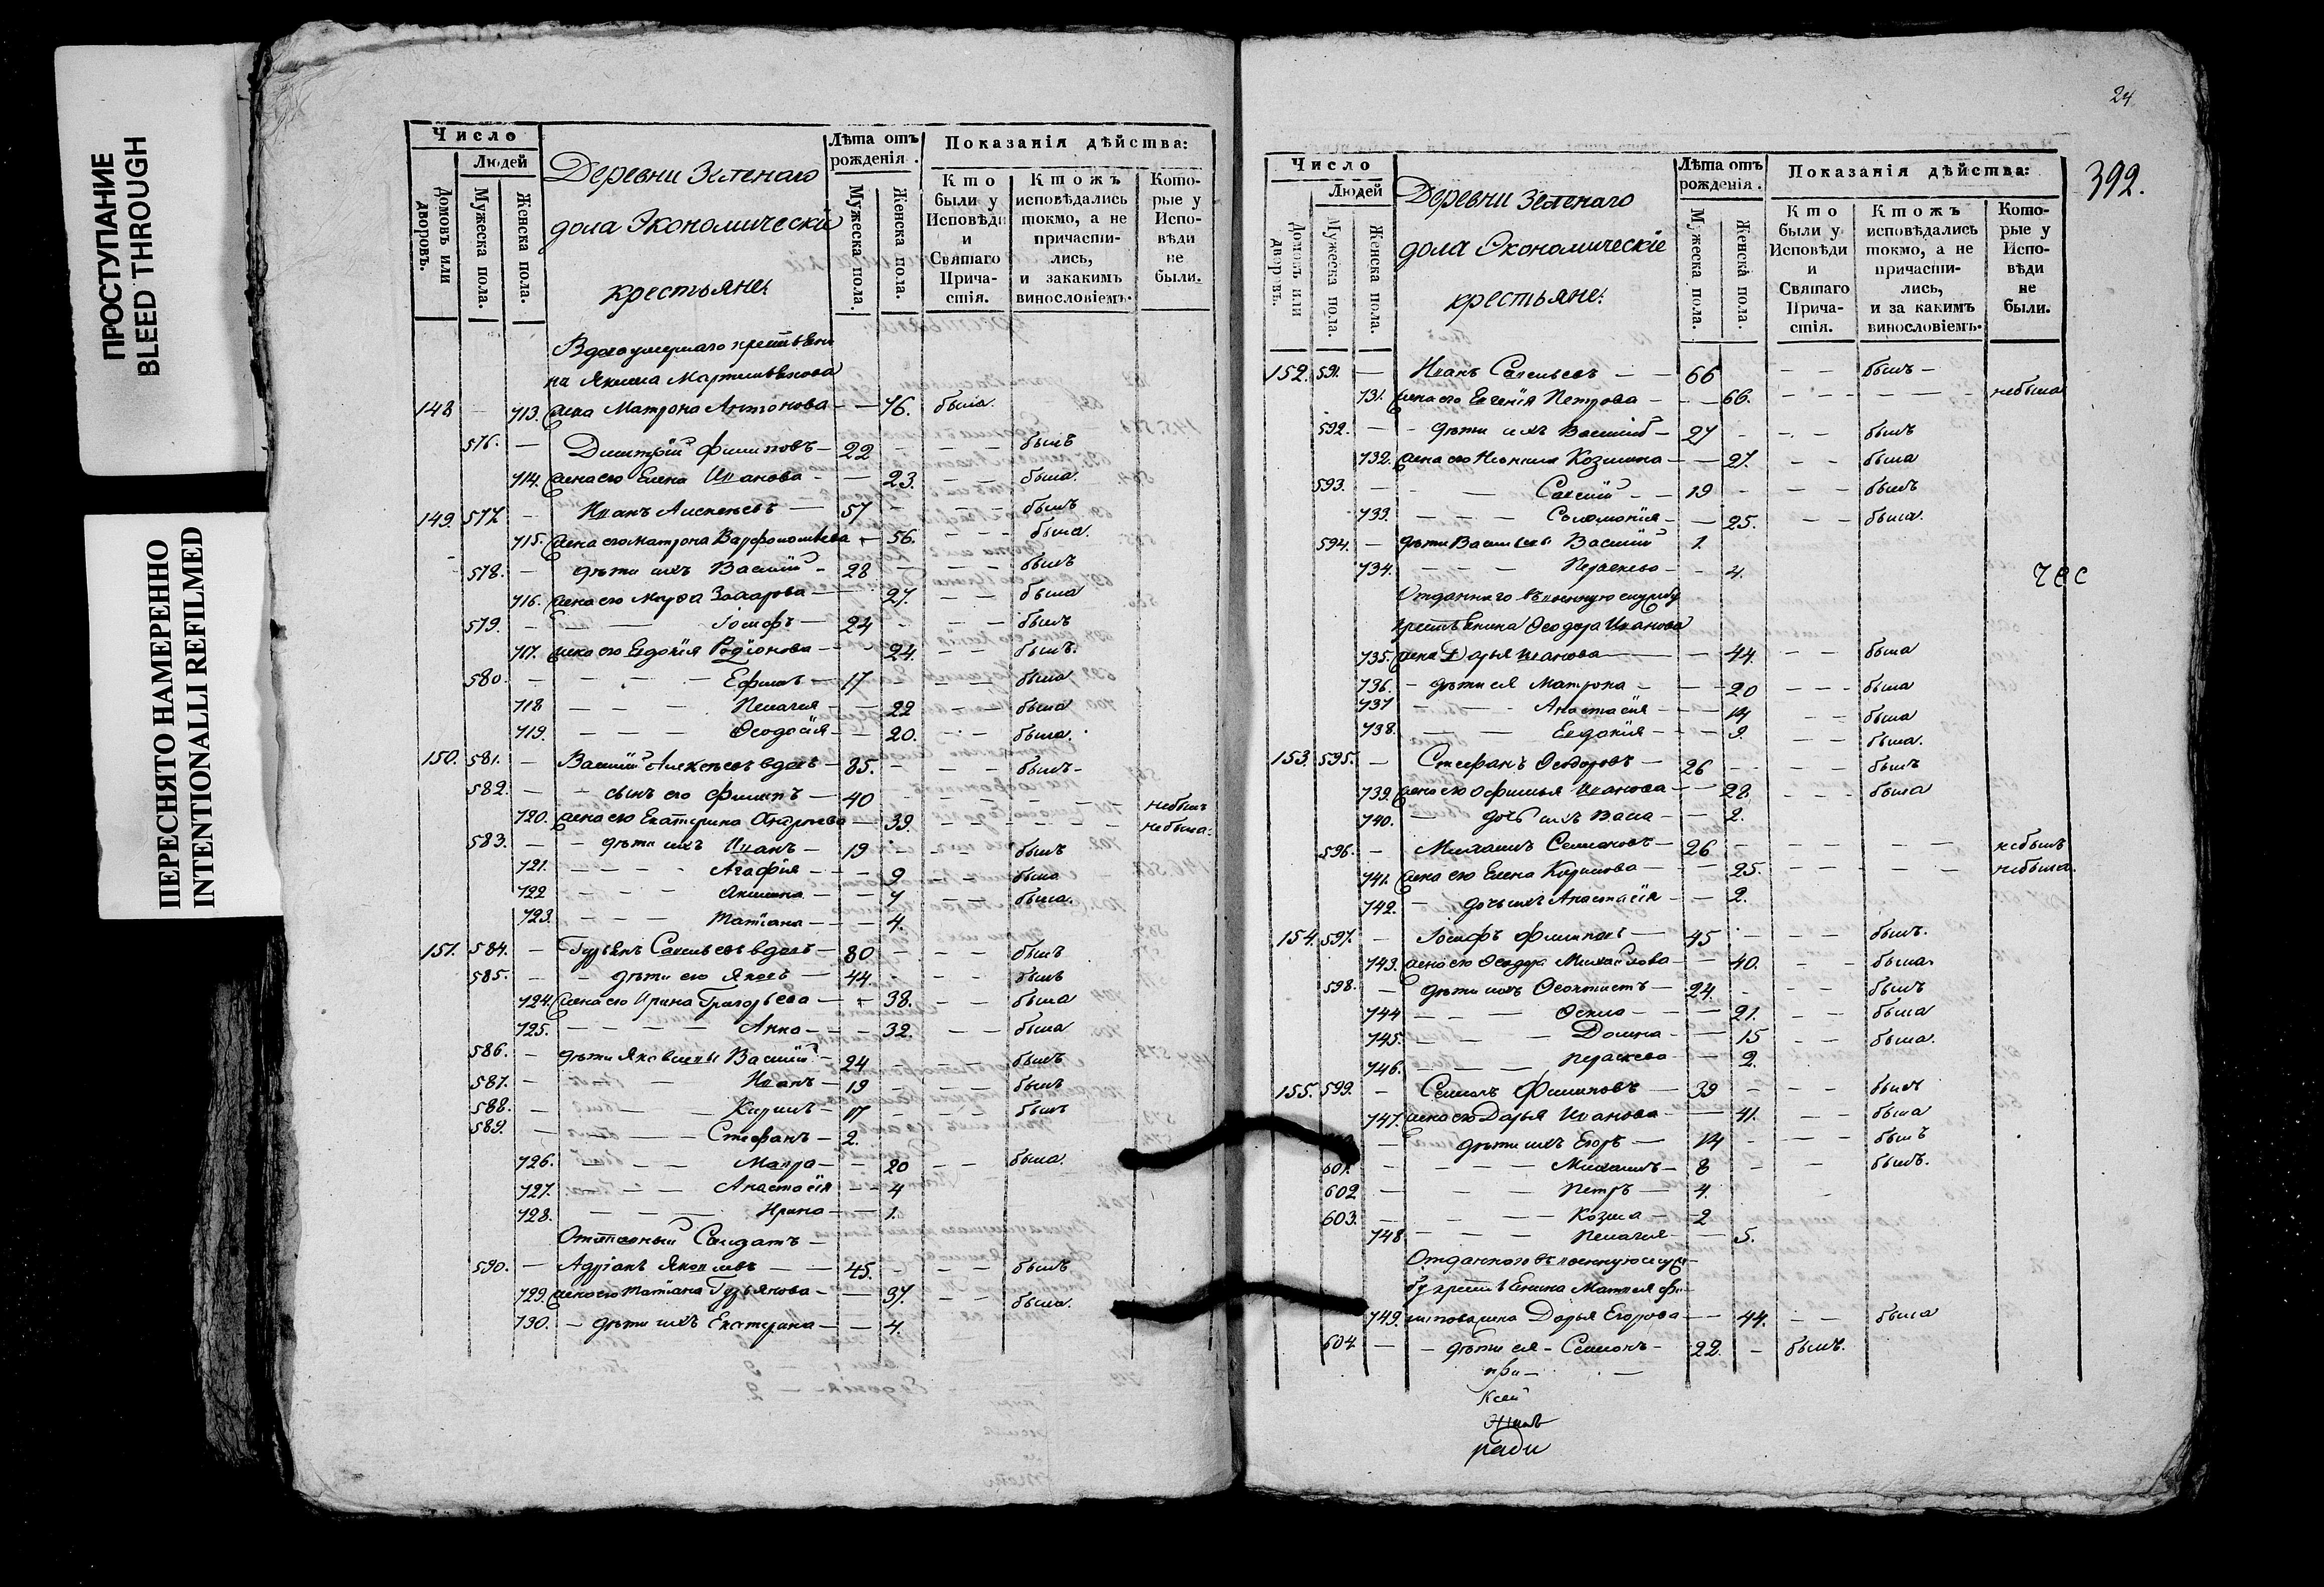 ПРОСТУПАНИЕ
BLEED THROUGH
ПЕРЕСНЯТО НАМЕРЕННО
INTENTIONALLI REFILMED
Число
Людей
Домовъ или дворовъ.
Мужеска пола.
Женска пола.
Деревни Зеленаго
дола Экономическiе
крестьяне:
Лѣта отъ рожденiя.
Мужеска пола.
Женска пола.
Показанiя дѣйства:
Кто были у Исповѣди и Святаго Причастiя.
Ктожъ исповѣдались токмо, а не причастились, и закакимъ винословiемъ.
Которые у Исповѣди не были.
148 – 713. жена Матрона Антонова – – 76. была.
576. – Димитрiй Филиповъ – 22 – – – былъ
714. жена его Елена Иванова – – 23. – – была.
149. 577 – Иванъ Алексеевъ – 57 – – – былъ
715. жена его Матрона Варфоломѣева – 56. – – – была.
578. – дѣти ихъ Василiй – 28 – – – былъ
716. жена его Марѳа Захарова – – 27. – – была
579. – – – Iосифъ – 24 – – – былъ
717. жена его Евдокiя Родiонова – – 24. – – былъ.
580. – – – – Ефимъ – 17 – – – была
718 – – – Пелагея – – 22 – – была
719. – – – – Ѳеодосiя – – 20. – – была.
150. 581. – Василiй Алексеевъ вдовъ – 85. – – – былъ –
582. – – сынъ его Филипъ – 40 – – – – – небылъ
720. жена его Екатерина Андреева – 39. – – – – – небыла.
583. – – дѣти ихъ Иванъ – 19 – – – былъ
721. – – – – Агафiя – – – 9 – – была
722 – – – – Акилина – – – 7 – – была.
723. – – – Татiана – – – 4.
151. 584. – Гурьянъ Савельевъ вдовъ – 80 – – – былъ
585. – – дѣти его Яковъ – 44. – – – былъ
724. жена его Ирина Григорьева – – 38. – – была
725. – – – – Анна – – – 32. – – была
586. – дѣти Яковлевы Василiй – 24 – – – былъ
587. – – Иванъ – 19 – – – былъ
588. – – – Кирилъ – 17 – – – былъ
589. – – – – Стефанъ – 2.
726. – – – Мавра – – 20 – – была.
727. – – – Анастасiя – – 4
728. – – – – Ирина – – 1.
Отставный Салдатъ –
590. – Адрiанъ Яковлевъ – – 45. – – – былъ
729. жена его Татiана Гурьянова – – 37. – – была.
730. – дѣти ихъ Екатерина – – 4.
24
392.
Число
Людей
Домовъ или дворовъ.
Мужеска пола.
Женска пола.
Деревни Зеленаго
дола Экономическiе
крестьяне:
Лѣта отъ рожденiя.
Мужеска пола.
Женска пола.
Показанiя дѣйства:
Кто были у Исповѣди и Святаго Причастiя.
Ктожъ исповѣдались токмо, а не причастились, и за какимъ винословiемъ.
Которые у Исповѣди не были.
152. 591. – Иванъ Савельевъ – – 66 – – былъ –
731. жена его Евгенiя Петрова – – – 66. – – – – – – небыла
592. – – дѣти ихъ Василiй – 27 – – – былъ
732. жена его Козмина – – 27. – – была
593. – – – Савелiй – – 19 – – – былъ
733. – – – Соломонiя – – 25. – – была.
594. – дѣти Васильевы Василiй 1.
734. – – – Параскева – – 4.
Отданнаго въ военную службу
крестьянина Ѳеодора Иванова
735. жена Дарья Иванова – – 44. – – была
736. – дѣти ея Матрона – – – 20 – – – была
737 – – Анастасiя – – – 14 – – была
738. – – Евдокiя – – – 9. – – была.
153. 595. – Стефанъ Ѳеодоровъ – 26 – – – былъ
739. жена его Офимья Иванова – – 28. – – – была
740. – дочь ихъ Васа – – 2.
596. – Михаилъ Семеновъ – 26 – – – – – небылъ
741. жена его Елена Кирилова – – 25. – – – – – небыла.
742. – дочь ихъ Анастасiя – – 2.
154. 597. – Iосифъ Филиповъ – 45 – – – былъ.
743. жена его Ѳеодора Михайлова – – 40. – – была.
598. – дѣти ихъ Ѳеоктистъ – 24. – – былъ
744 – – – Ѳекла – – – 21. – – была
745. – – – Домна – – 15 – – была.
746. – – – Параскева – – 2.
155. 599. – Семенъ Филиповъ – 39 – – – былъ
747. жена его Дарья Иванова – – 41. – – была
– дѣти ихъ Егоръ – 14 – – – былъ
601. – – – – Михаилъ – 8 – – былъ.
602 – – – Петръ – 4.
603. – – – – Козма – 2
748 – – – – Пелагея – – 5.
Отданнаго въ военную служ-
бу крестьянина Матвея Фи-
749. липова жена Дарья Егорова – – 44. – – была
604. – – дѣти ея – Семенъ – 22. – былъ.